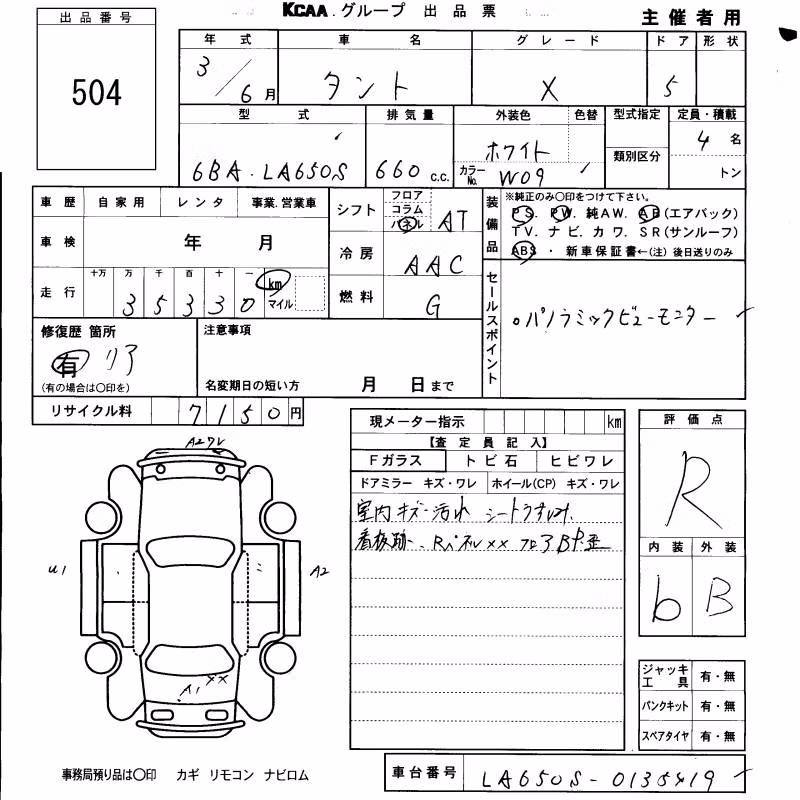 KCAA.グループ 出品票
主催者用
出品番号
504
年式 車名 グレード ドア 形状
3/6月 タント X 5
型式 排気量 外装色 色替 型式指定 定員・積載
6BA-LA650S 660 c.c. ホワイト 類別区分 4名
カラーNo. W09 トン
車歴 自家用 レンタ 事業.営業車
車検 年 月
走行 十万 万 千 百 十 一
35330 km マイル
シフト フロア コラム パネル AT
冷房 AAC
燃料 G
装備品
※純正のみ○印をつけて下さい。
PS. PW. 純AW. AB(エアバック)
TV. ナビ. カワ. SR(サンルーフ)
ABS ・ 新車保証書←(注)後日送りのみ
セールスポイント
○パノラミックビューモニター
修復歴 箇所
有 リア
(有の場合は○印を)
注意事項
名変期日の短い方 月 日まで
リサイクル料 7150円
現メーター指示 km
【査定員記入】
Fガラス トビ石 ヒビワレ
ドアミラー キズ・ワレ ホイール(CP) キズ・ワレ
室内キズー汚れ シートうすよごれ
看板跡 RパネルXX フロアBP歪
評価点
R
内装 外装
b B
ジャッキ工具 有・無
パンクキット 有・無
スペアタイヤ 有・無
A2ワレ
U1
A2
A1 XX
事務局預り品は○印 カギ リモコン ナビロム
車台番号 LA650S-0135419